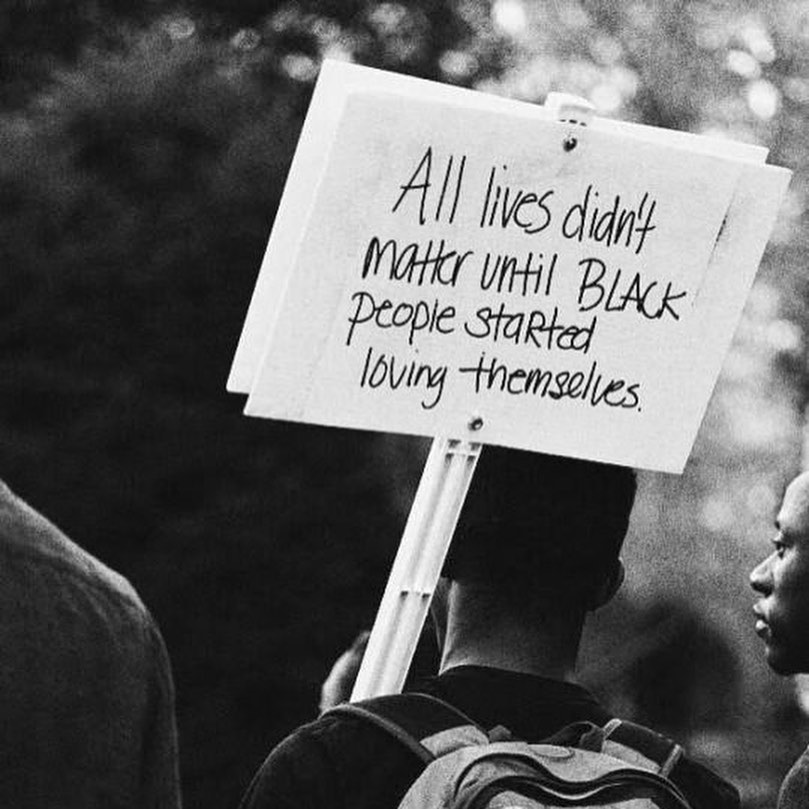 All lives didn't
matter until BLACK
people started
loving themselves.